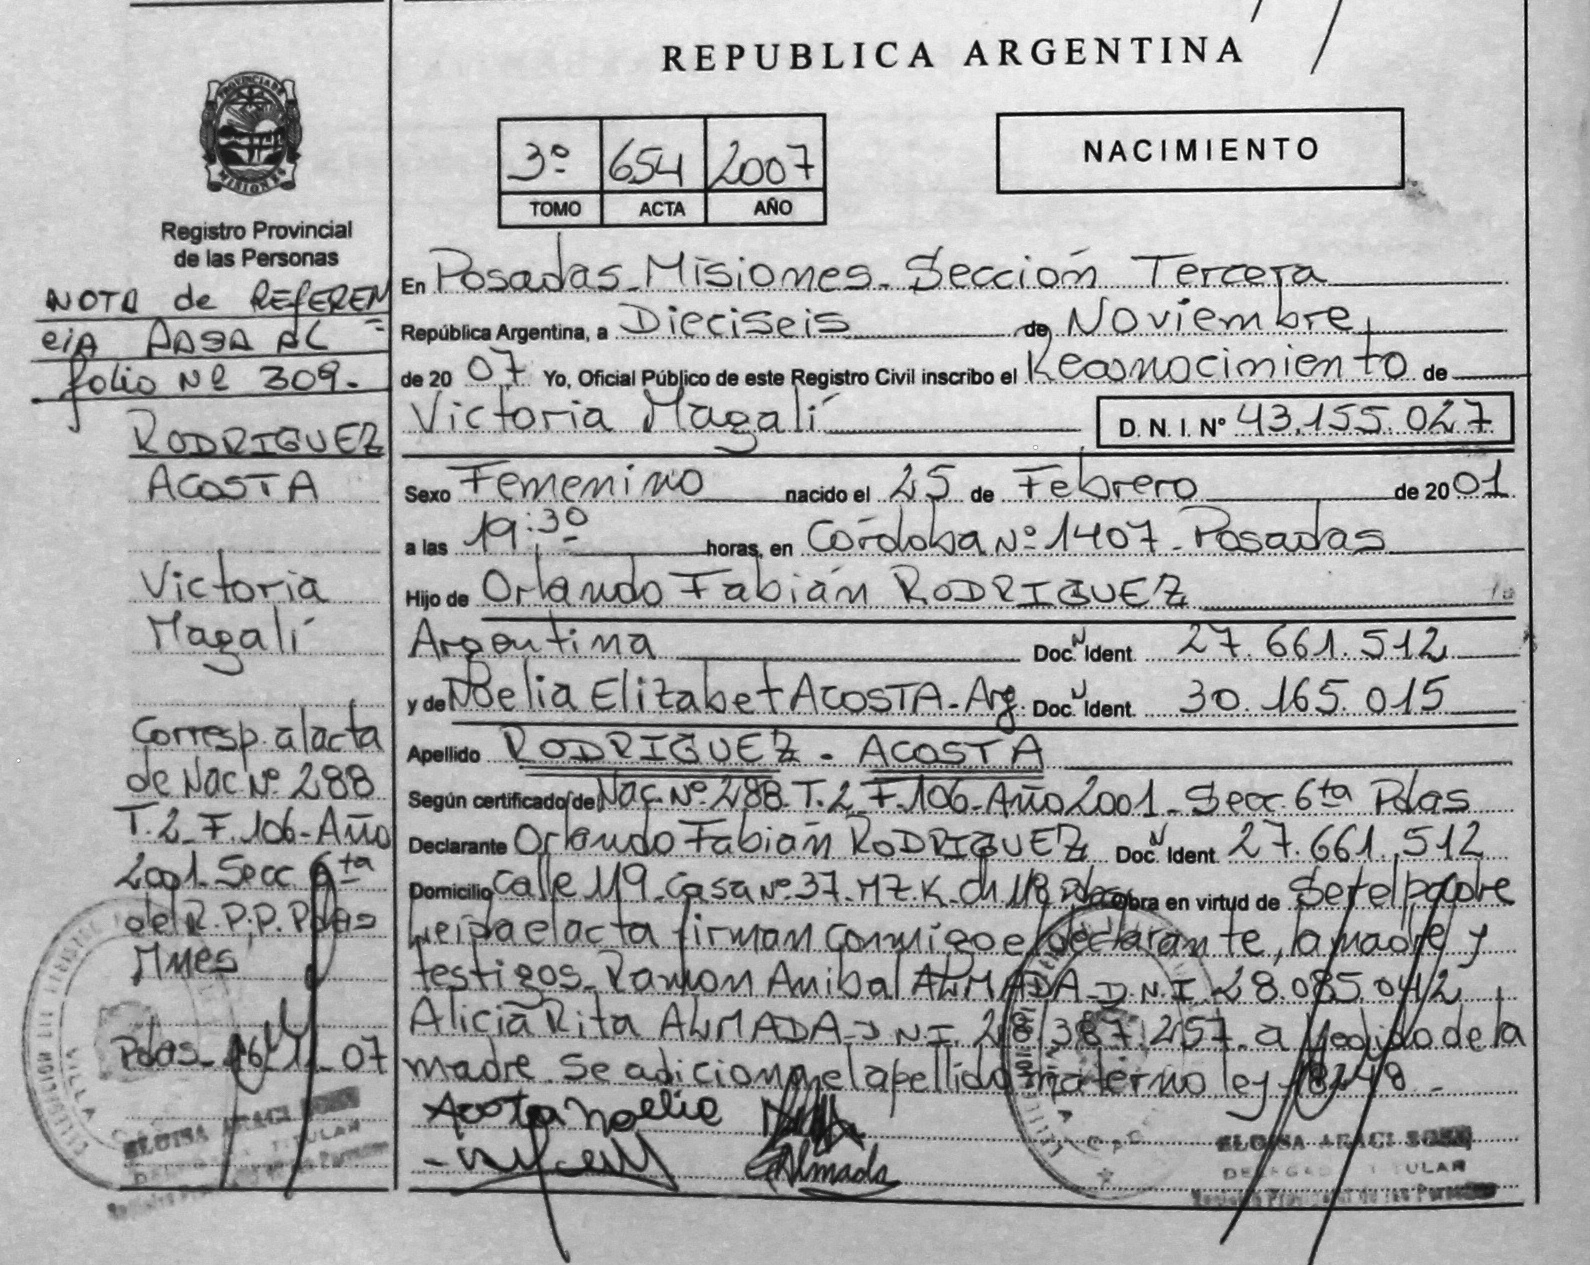 REPUBLICA ARGENTINA
PROVINCIA DE
MISIONES
Registro Provincial
de las Personas
3º 654 2007
TOMO ACTA AÑO
NACIMIENTO
NOTA de REFEREN
CIA PASA AL
folio Nº 309.-
RODRIGUEZ
ACOSTA
Victoria
Magalí
Corresp. al acta
de Nac Nº 288
T. 2 F. 106 - Año
2001. Secc 6ta
del R. P. P. Pdas
Mnes
Pdas - 16 11 07
ELOISA ARACI
TITULAR
En Posadas - Misiones - Sección Tercera
República Argentina, a Dieciseis de Noviembre
de 20 07 Yo, Oficial Público de este Registro Civil inscribo el Reconocimiento de
Victoria Magalí D. N. I. Nº 43.155.027
Sexo Femenino nacido el 25 de Febrero de 20 01
a las 19:30 horas, en Córdoba Nº 1407 - Posadas
Hijo de Orlando Fabián RODRIGUEZ
Argentina Doc. Ident. 27.661.512
y de Noelia Elizabet ACOSTA - Arg. Doc. Ident. 30.165.015
Apellido RODRIGUEZ - ACOSTA
Según certificado de Nac. Nº 288 T. 2 F. 106 - Año 2001 - Secc. 6ta Pdas
Declarante Orlando Fabián RODRIGUEZ Doc. Ident. 27.661.512
Domicilio Calle 119 - Casa Nº 37 - MZ. K - Ch 118 Pdas Obra en virtud de Ser el padre
Leída el acta firman conmigo el declarante, la madre y
testigos - Ramon Anibal ALMADA - D.N.I. 28.085.042
Alicia Rita ALMADA - D.N.I. 28.387.257 - a pedido de la
madre se adiciona el apellido materno ley 18248 -
Acosta Noelia
Almada
ELOISA ARACI
DELEGADA TITULAR
Registro Provincial de las Personas